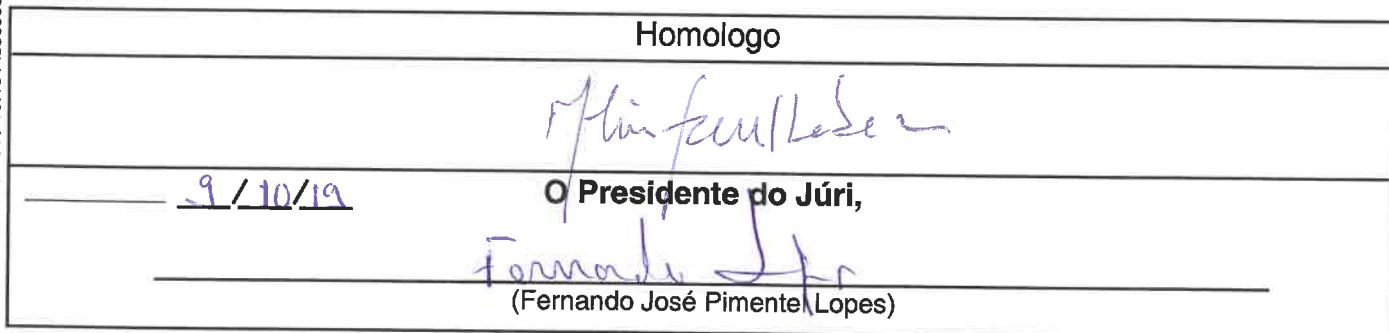 Homologo
9/10/19 O Presidente do Júri,
Fernando Lopes
(Fernando José Pimentel Lopes)